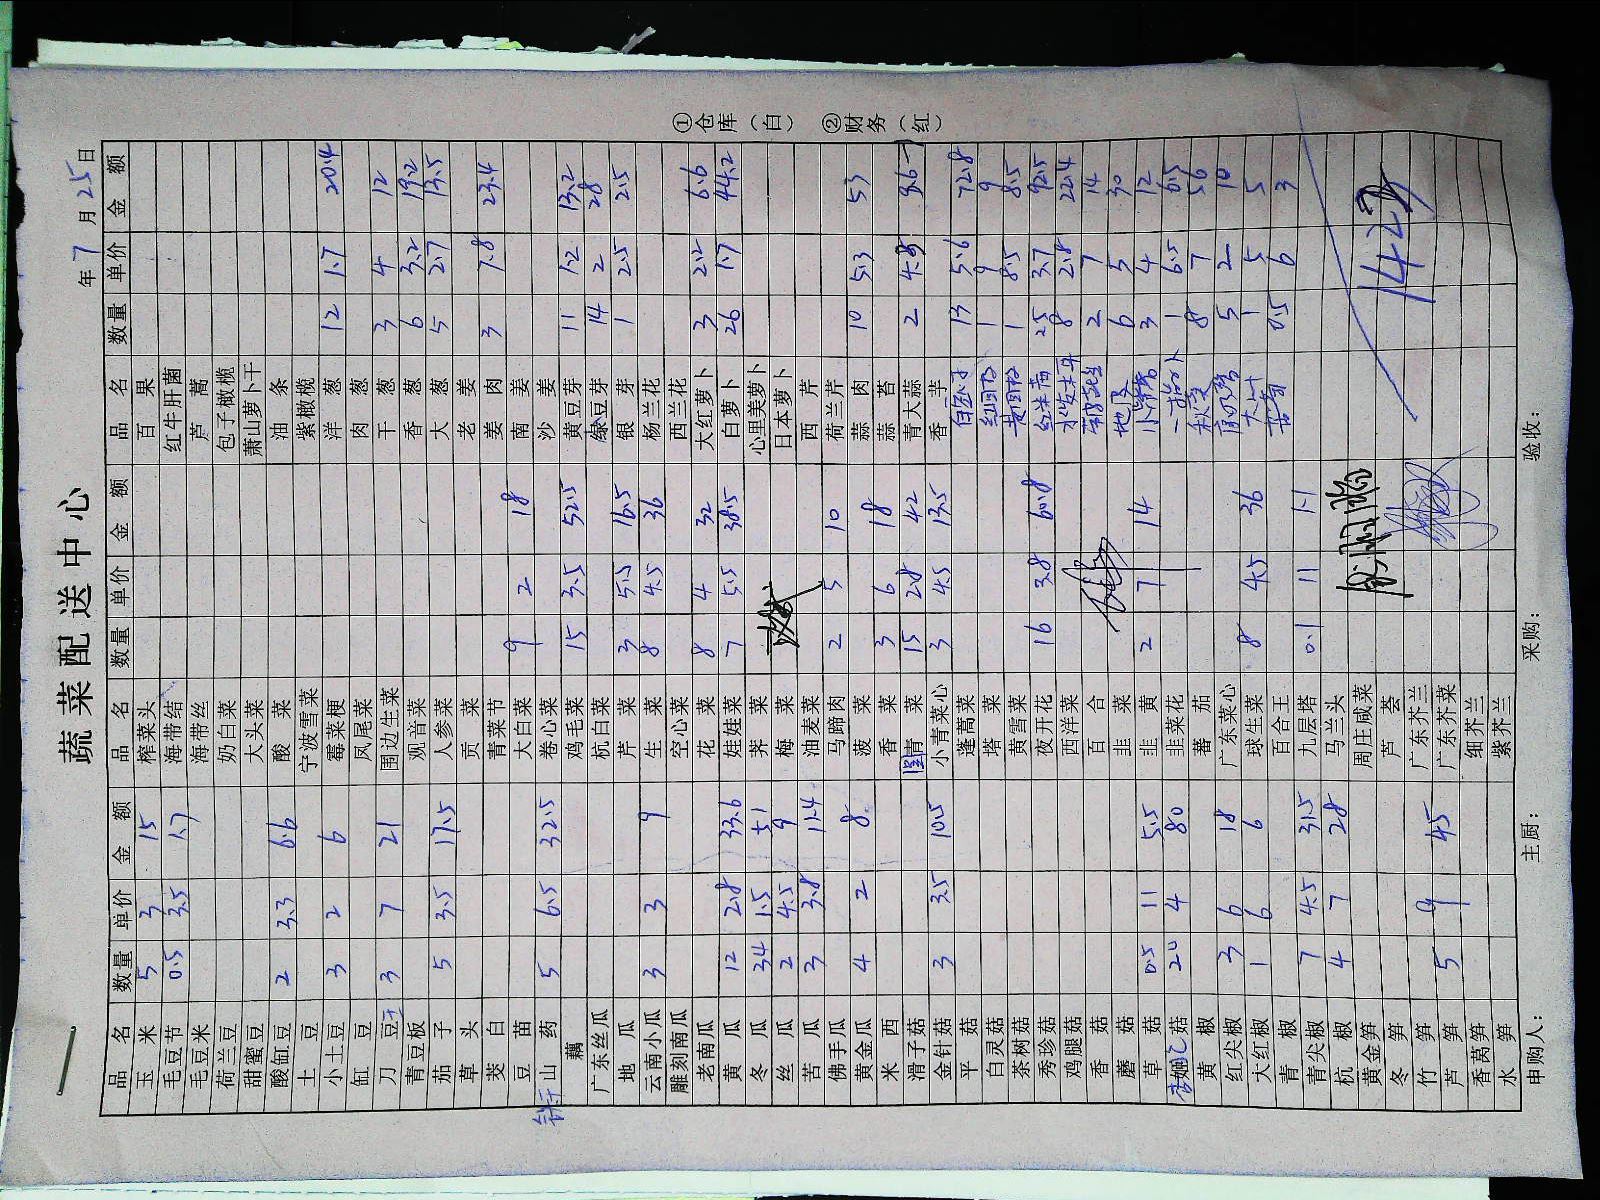 蔬菜配送中心
年 7 月 25 日
品名 数量 单价 金额 品名 数量 单价 金额 品名 数量 单价 金额
玉米 5 3 15 榨菜头 百果
毛豆节 0.5 3.5 1.7 海带结 红牛肝菌
毛豆米 海带丝 芦蒿
荷兰豆 奶白菜 包子橄榄
甜蜜豆 大头菜 萧山萝卜干
酸缸豆 2 3.3 6.6 酸菜 油条
土豆 宁波雪菜 紫橄榄
小土豆 3 2 6 霉菜梗 洋葱 12 1.7 20.4
缸豆 凤尾菜 肉葱
刀豆 3 7 21 围边生菜 干葱 3 4 12
青豆板 观音菜 香葱 6 3.2 19.2
茄子 5 3.5 17.5 人参菜 大葱 5 2.7 13.5
草头 贡菜 老姜
茭白 青菜节 姜肉 3 7.8 23.4
豆苗 大白菜 9 2 18 南姜
山药 5 6.5 32.5 卷心菜 沙姜
藕 鸡毛菜 15 3.5 52.5 黄豆芽 11 1.2 13.2
广东丝瓜 杭白菜 绿豆芽 14 2 28
地瓜 芹菜 3 5.5 16.5 银芽 1 2.5 2.5
云南小瓜 3 3 9 生菜 8 4.5 36 杨兰花
雕刻南瓜 空心菜 西兰花
老南瓜 花菜 8 4 32 大红萝卜 3 2.2 6.6
黄瓜 12 2.8 33.6 娃娃菜 7 5.5 38.5 白萝卜 26 1.7 44.2
冬瓜 34 1.5 51 荠菜 心里美萝卜
丝瓜 2 4.5 9 梅菜 日本萝卜
苦瓜 3 3.8 11.4 油麦菜 西芹
佛手瓜 马蹄肉 2 5 10 荷兰芹
黄金瓜 4 2 8 菠菜 蒜肉 10 5.3 53
米西 香菜 3 6 18 蒜苔
滑子菇 青菜 15 2.8 42 青大蒜 2 4.8 9.6
金针菇 3 3.5 10.5 小青菜心 3 4.5 13.5 香芋
平菇 蓬蒿菜 13 5.6 72.8
白灵菇 塔菜 红圆椒 1 9 9
茶树菇 黄雪菜 黄圆椒 1 8.5 8.5
秀珍菇 夜开花 16 3.8 60.8 红米苋 25 3.7 92.5
鸡腿菇 西洋菜 水发木耳 8 2.8 22.4
香菇 百合 2 7 14
蘑菇 韭菜 6 5 30
草菇 0.5 11 5.5 韭黄 2 7 14 3 4 12
姬菇 20 4 80 韭菜花 1 6.5 6.5
黄椒 蕃茄 秋葵 8 7 56
红尖椒 3 6 18 广东菜心 5 2 10
大红椒 1 6 6 球生菜 8 4.5 36 1 5 5
青椒 百合王 苦菊 0.5 6 3
青尖椒 7 4.5 31.5 九层塔 0.1 11 1.1
杭椒 4 7 28 马兰头
黄金笋 周庄咸菜
冬笋 芦荟
竹笋 广东芥兰
芦笋 5 9 45 广东芥菜
香莴笋 细芥兰
水笋 紫芥兰
申购人: 主厨: 采购: 验收:
①仓库(白) ②财务(红)